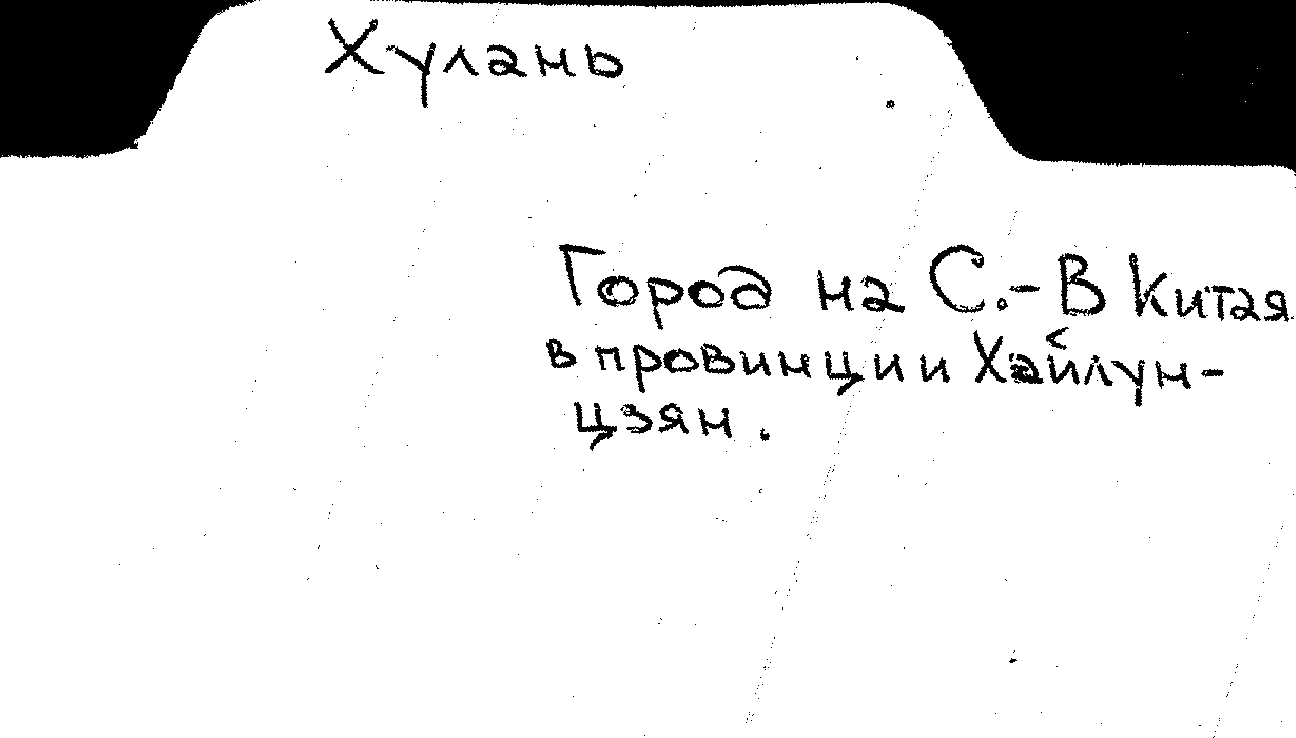 Хулань
Город на С.-В Китая
в провинции Хайлун-
цзян.